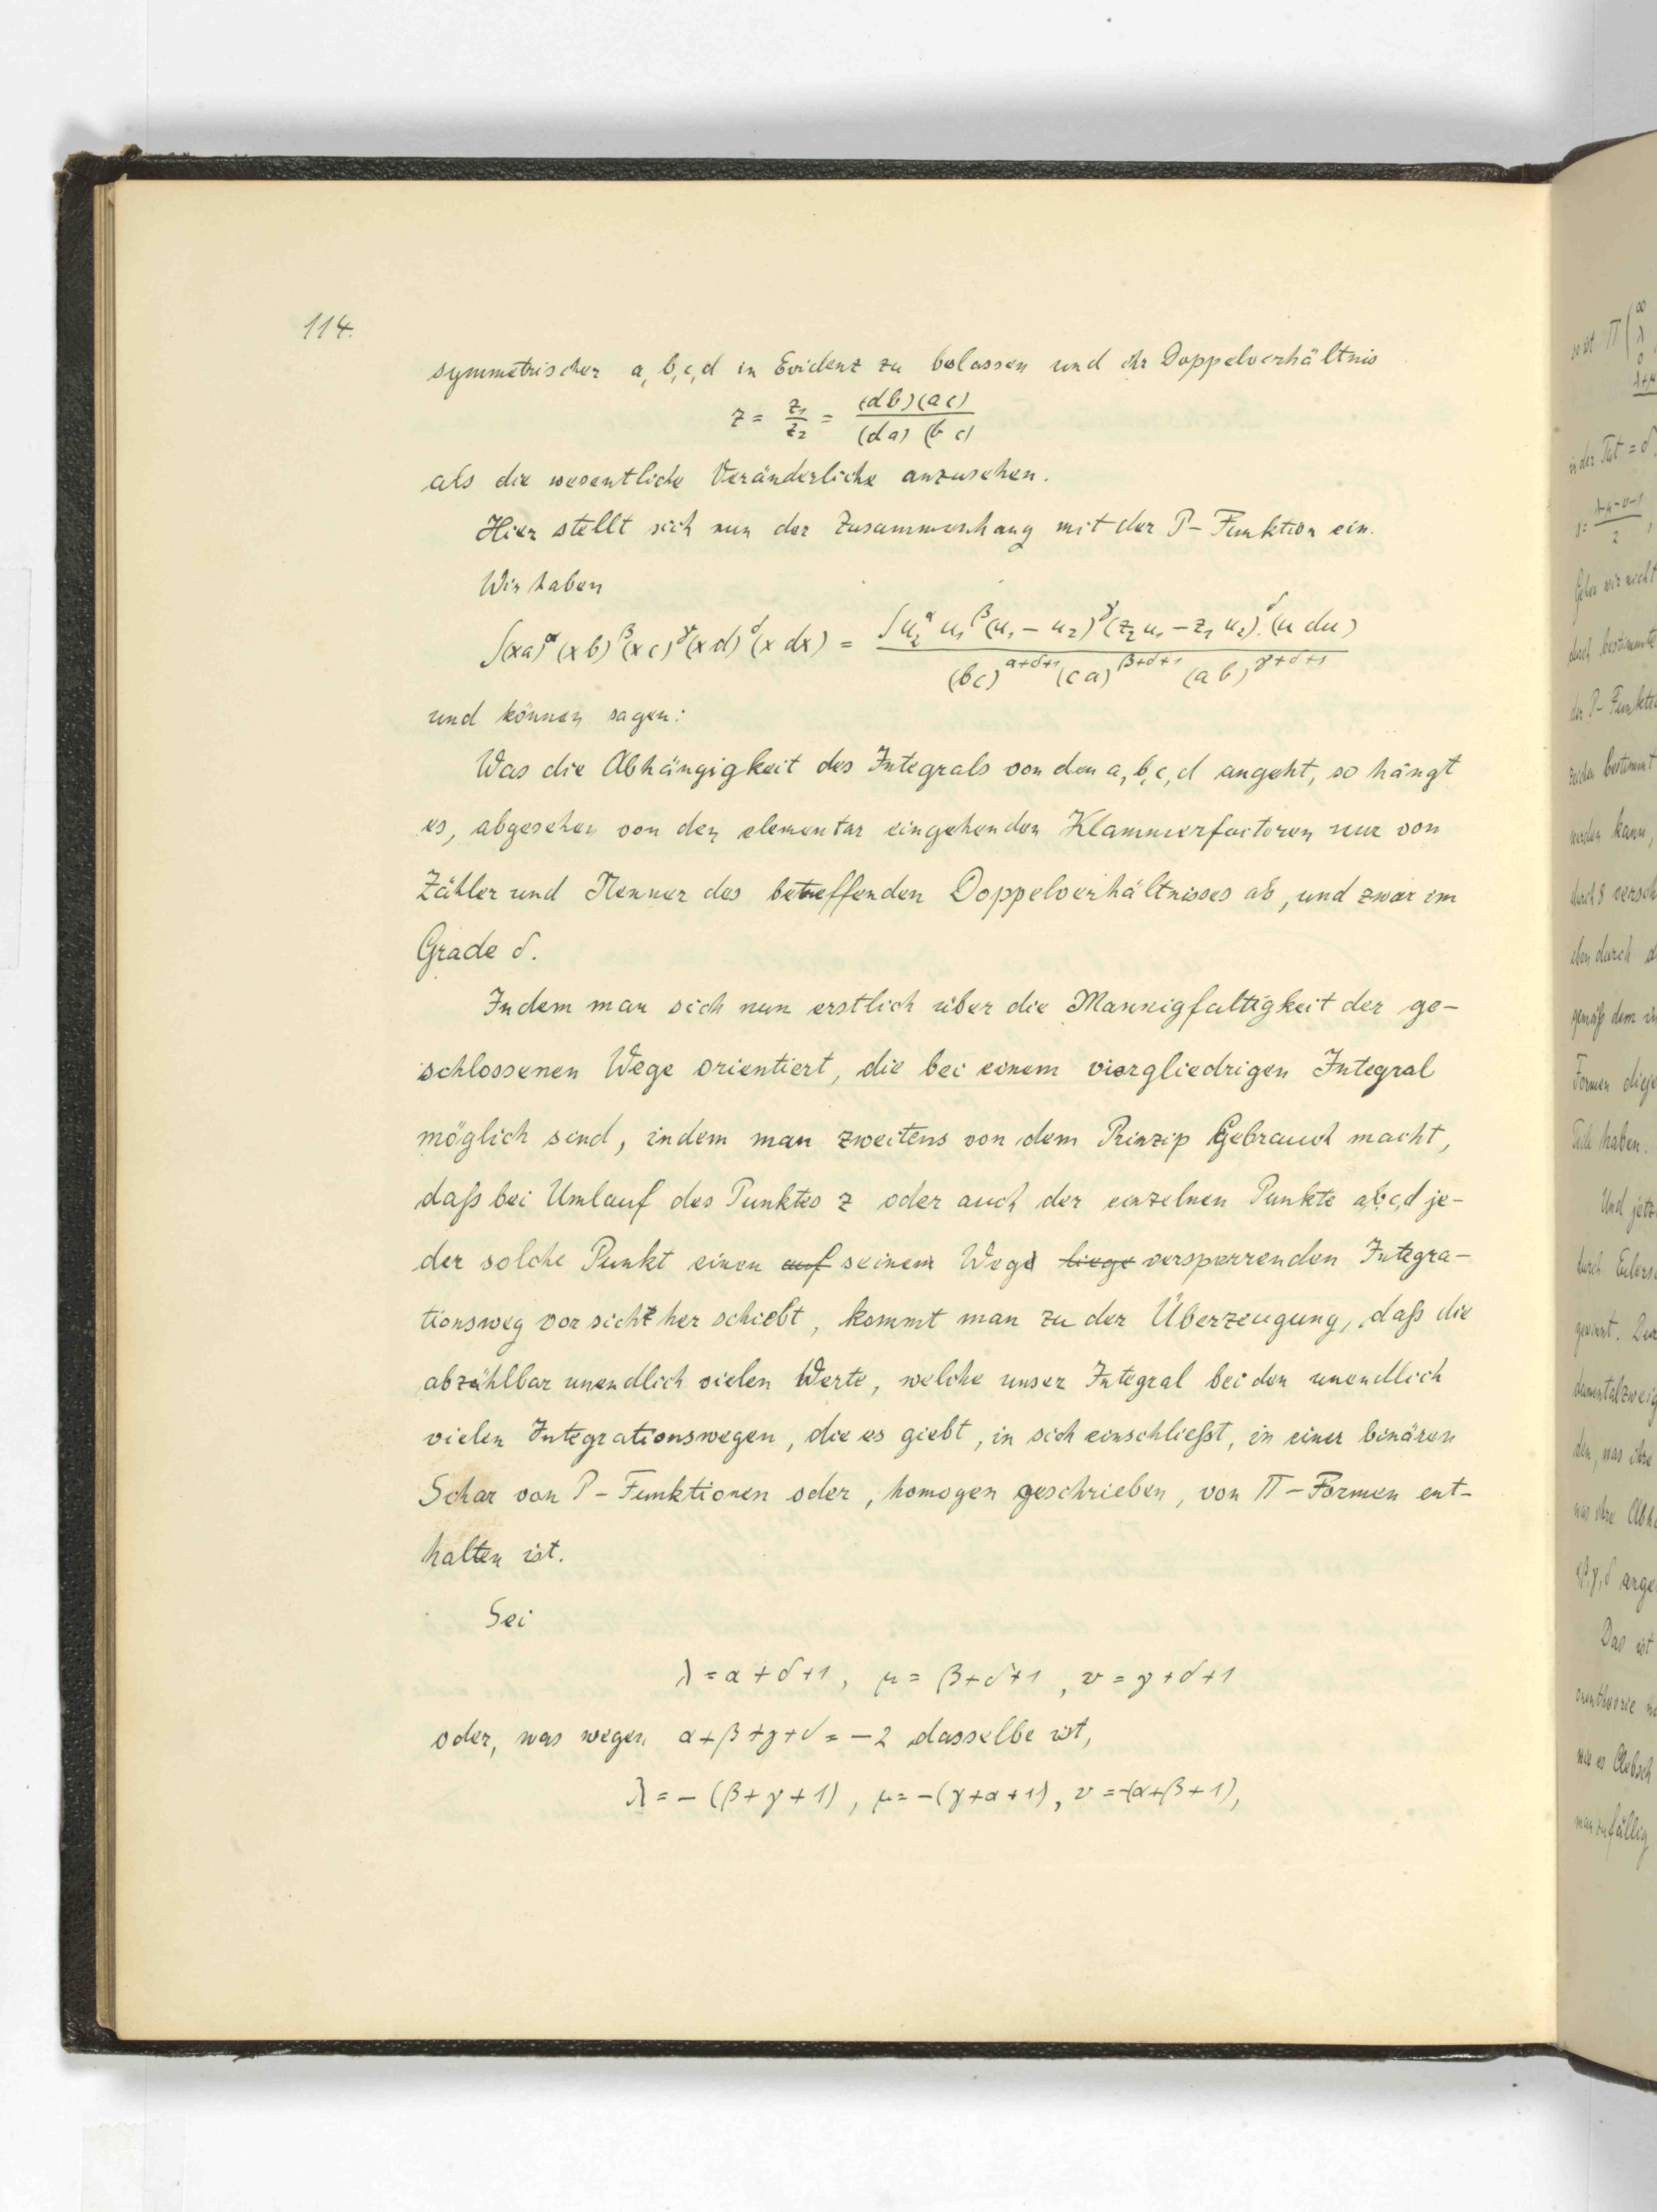 114.
symmetrischer a, b, c, d in Evidenz zu belassen und ihr Doppelverhältnis
z = z₁/z₂ = (db)(ac)/(da)(bc)
als die wesentliche Veränderliche anzusehen.
Hier stellt sich nun der Zusammenhang mit der P-Funktion ein.
Wir haben
∫(xa)^α (xb)^β (xc)^γ (xd)^δ (x dx) = ∫u₂^α u₁^β (u₁ − u₂)^γ (z₂u₁ − z₁u₂)^δ. (u du) / (bc)^{α+δ+1} (ca)^{β+δ+1} (ab)^{γ+δ+1}
und können sagen:
Was die Abhängigkeit des Integrals von den a, b, c, d angeht, so hängt
es, abgesehen von den elementar eingehenden Klammerfactoren nur von
Zähler und Nenner des betreffenden Doppelverhältnisses ab, und zwar im
Grade δ.
Indem man sich nun erstlich über die Mannigfaltigkeit der ge-
schlossenen Wege orientiert, die bei einem viergliedrigen Integral
möglich sind, indem man zweitens von dem Prinzip Gebrauch macht,
daß bei Umlauf des Punktes z oder auch der einzelnen Punkte a, b, c, d je-
der solche Punkt einen auf seinem Wege liege versperrenden Integra-
tionsweg vor sich her schiebt, kommt man zu der Überzeugung, daß die
abzählbar unendlich vielen Werte, welche unser Integral bei den unendlich
vielen Integrationswegen, die es giebt, in sich einschließt, in einer binären
Schar von P-Funktionen oder, homogen geschrieben, von Π-Formen ent-
halten ist.
Sei
λ = α + δ + 1, μ = β + δ + 1, ν = γ + δ + 1
oder, was wegen α + β + γ + δ = −2 dasselbe ist,
λ = −(β + γ + 1), μ = −(γ + α + 1), ν = −(α + β + 1),